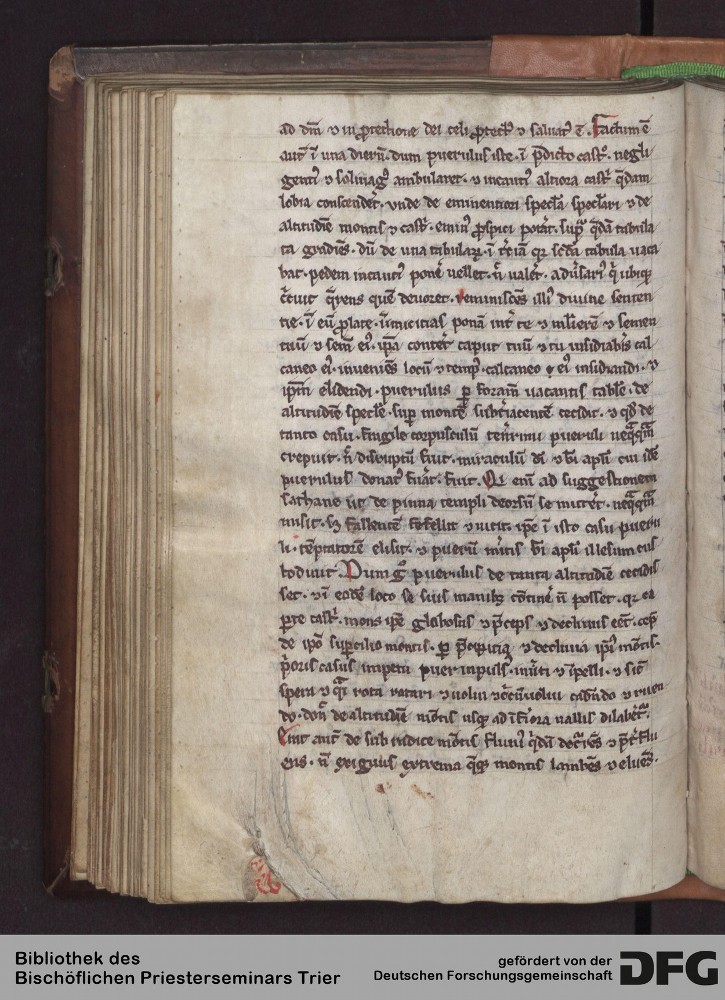 ad dm̄ ⁊ in ꝓtectione dei celi ꝓtect᷒ ⁊ saluat᷒ ē. Factum ē
aut̄ ī una dierū. dum puerulus iste. ī p̄dicto cast̓o. negli
gent᷒ ⁊ soliuag᷒ ambularet. ⁊ incaut᷒ altiora cast̓ q̄dam
lobia conscender̄. unde de eminentiori specl̄a speclari ⁊ de
altitudīe montis ⁊ cast̓. emin᷒ ꝓspici pot̓at. sup̄ q̄dā tabula
ta gradiēs. dū de una tabularꝝ. ī t̓ciā qꝛ sc̄da tabula uaca
bat. pedem incaut᷒ pone᷒ uellet. ⁊ n̄ ualer̄. adu̓sari᷒ q̓ ubiqꝫ
c̓cuit q̄rens quē deuoret. reminiscēs illi᷒ diuine senten
tie. ī eū ꝓlate. inimicitias ponā int̓ te ⁊ mulierē ⁊ semen
tuū ⁊ sem̄ ei᷒. ip̄a conter̄ caput tuū ⁊ tu insidiaber̄ cal
caneo ei᷒. inueniēs locū ⁊ temp᷒. calcaneo ei᷒ insidiandi. ⁊
ip̄m elidendi. puerulus ꝑ foram̄ uacantis tabl̄e. de
altitudīe specl̄e. suꝑ montē subt̓iacentē cecidit. ⁊ qd̄ de
tanto casu. fragile corpusculū ten̓rimi pueruli neq̄q̄m
crepuit. n̄ disruptū fuit. miraculū di ⁊ bī apl̄i cui idē
puerulus donat᷒ fu̓at. fuit. Qi eni᷒ ad suggestionem
sathane ut de pinna templi deorsū se mitt̓et. neq̄q̄m
misit. sꝫ fallentē fefellit ⁊ uicit. ip̄e ī isto casu pueru
li. tēptatorē elisit. ⁊ puerū m̓itis bī apl̄i illesum cus
todiuit. Dum g᷒ puerulus de tanta altitudīe cecidis
set. ⁊ ī eodē loco se suis manibꝫ cōtiner̄ n̄ posset. qꝛ ea
parte cast̓. mons ip̄e globosus ⁊ p̄ceps ⁊ decliuis eēt. cep̄
de ip̄o suꝑcilio montis. ꝑ p̄cipicia ⁊ decliuia ip̄i᷒ mōtis.
p̓oris casus impetu puer inpuls᷒. inuiti ⁊ īpelli. ⁊ sic̄
spera ⁊ q̄i rota rotari ⁊ uolui ⁊ c̓cūuolui cadēdo ⁊ ruen
do. don̄ de altitudīe mōtis usqꝫ ad īf̓iora uallis dilaber̄t̓.
Erat aut̄ de sub radice mōtis fluui᷒ q̓dā dec̓rēs ⁊ p̄t̓flu
ens. n̄ exiguus extrema q̄qꝫ montis lambēs ⁊ eluēs.
Bibliothek des
Bischöflichen Priesterseminars Trier
gefördert von der
Deutschen Forschungsgemeinschaft
DFG